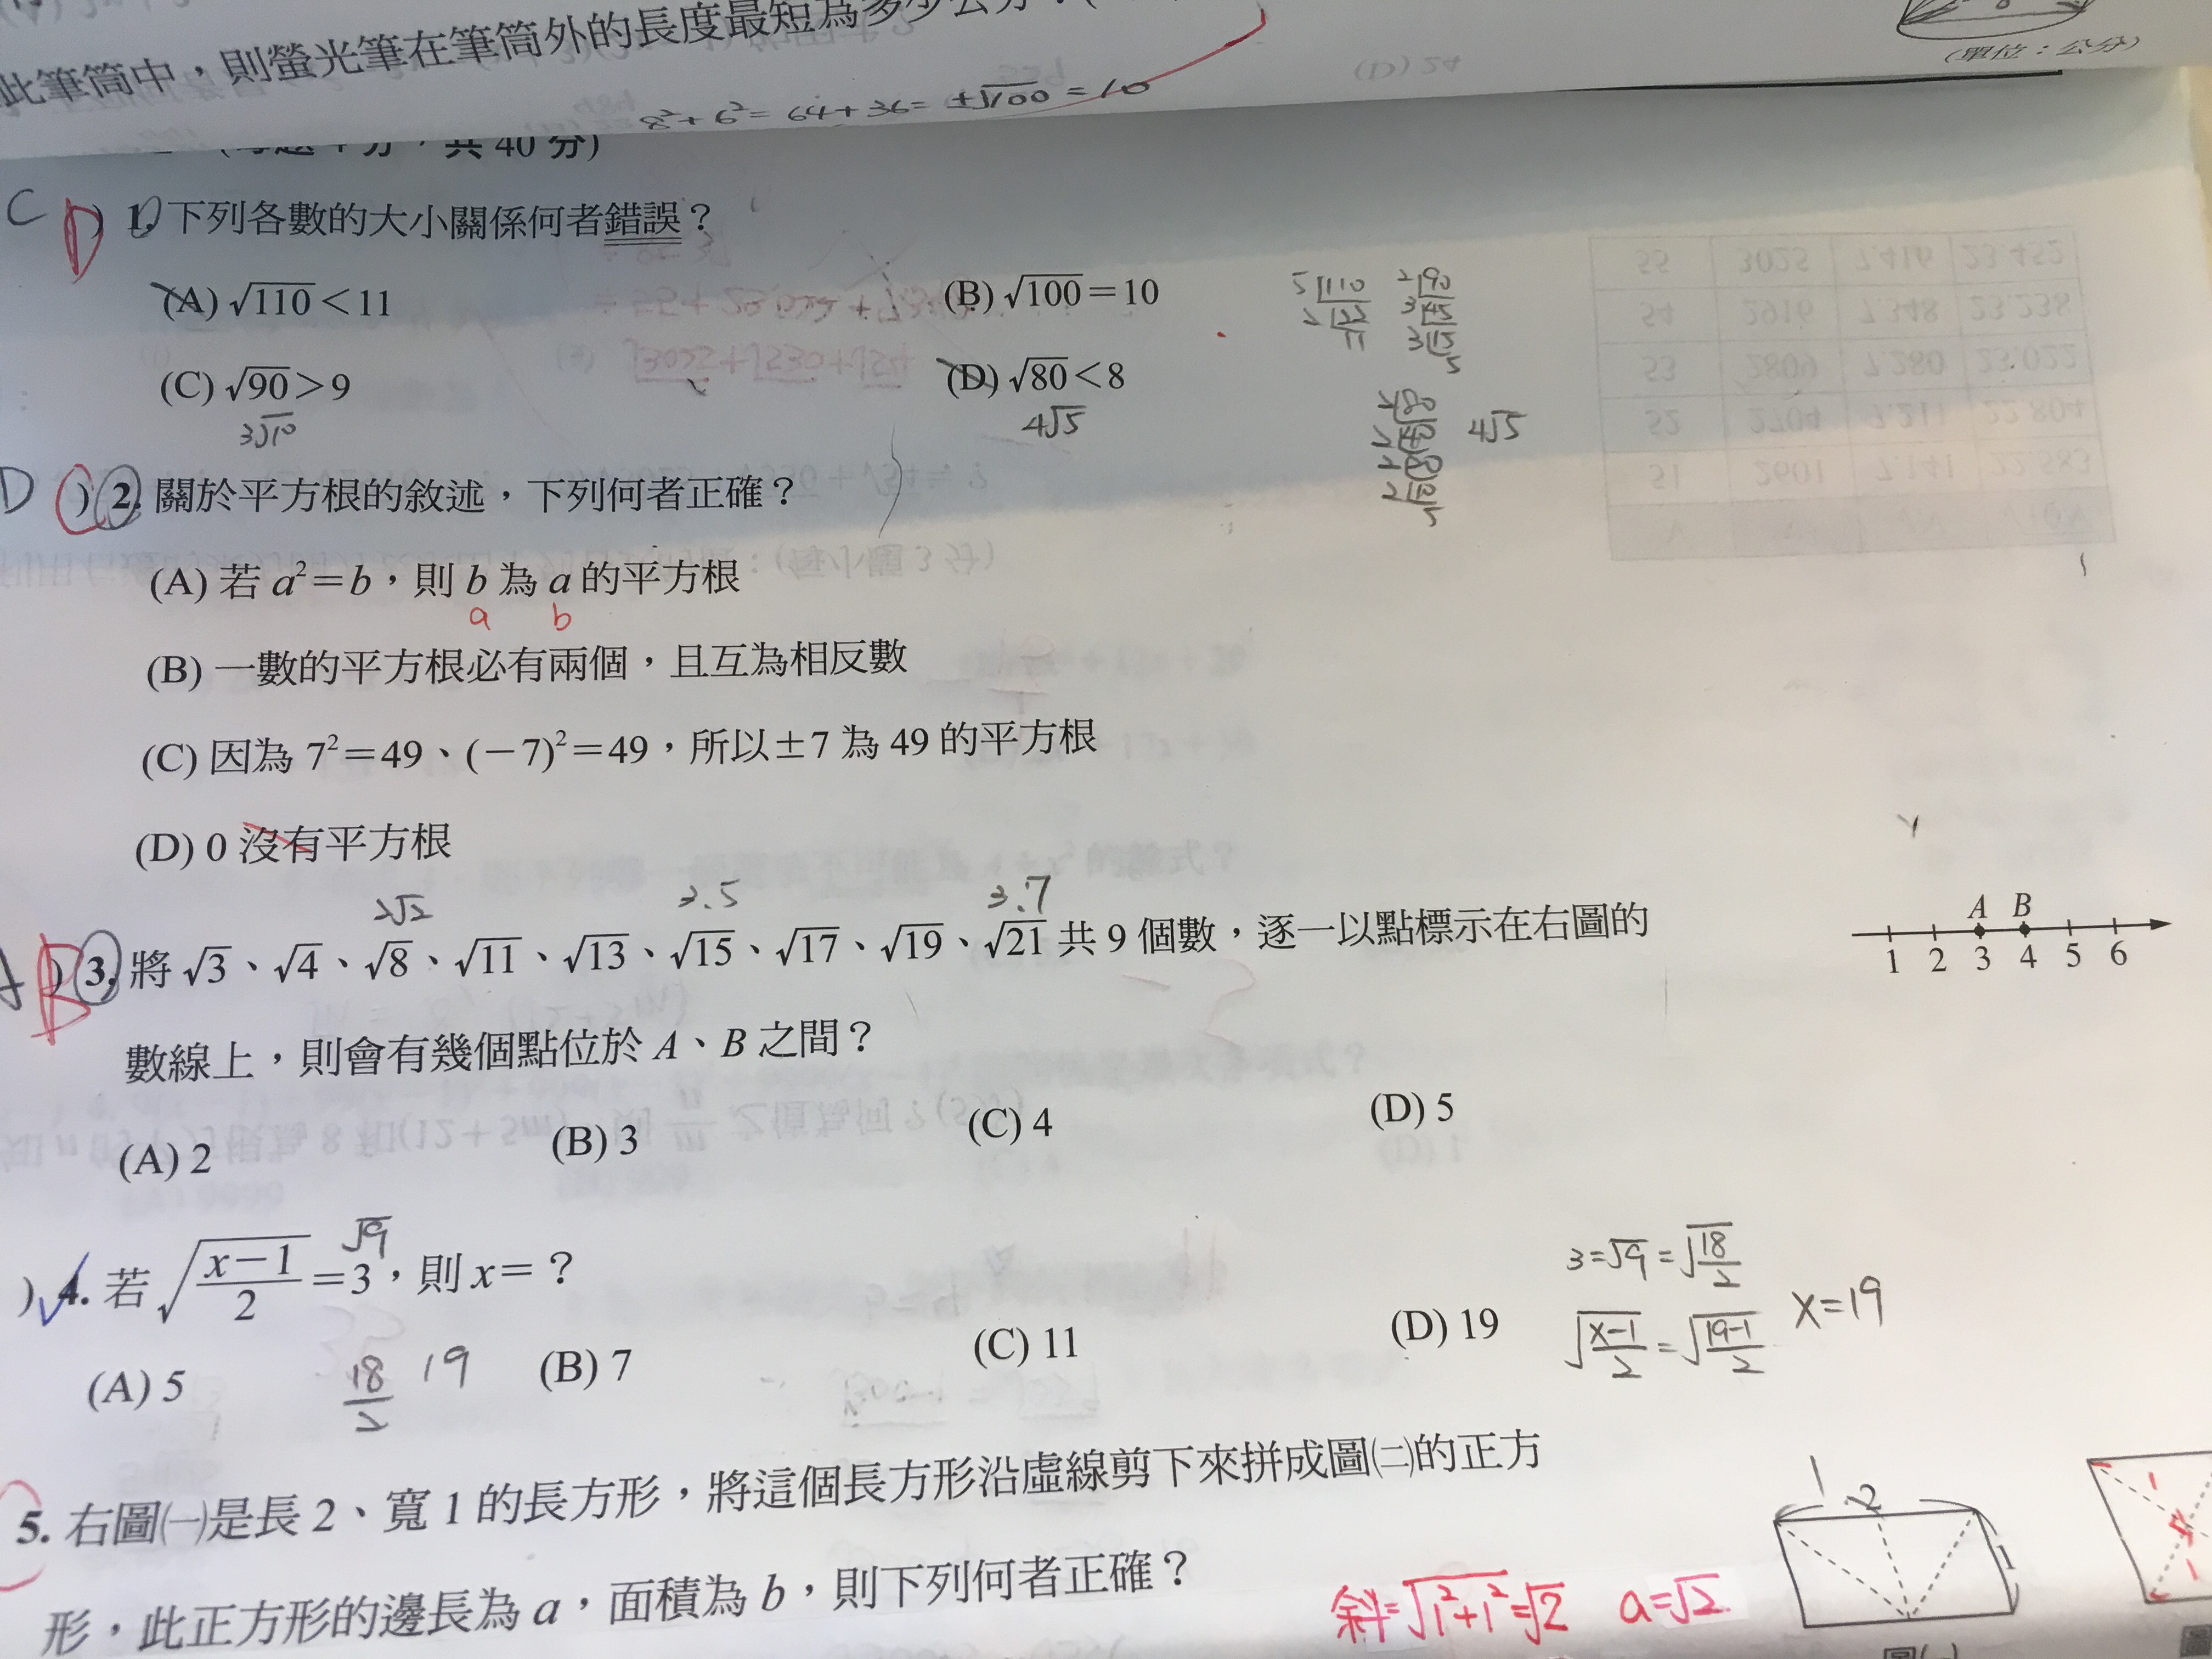 此筆筒中，則螢光筆在筆筒外的長度最短為多少公分？
(單位：公分)
8²+6²=64+36=±√100=10
共 40 分)
C D ) 1. 下列各數的大小關係何者錯誤？
(A) √110<11
(B) √100=10
(C) √90>9
3√10
(D) √80<8
4√5
5 110
2 22
11
2 90
3 45
3 15
5
2 80
2 40
2 20
2 10
5
4√5
D ) 2. 關於平方根的敘述，下列何者正確？
(A) 若 a²=b，則 b 為 a 的平方根
a b
(B) 一數的平方根必有兩個，且互為相反數
(C) 因為 7²=49、(−7)²=49，所以±7 為 49 的平方根
(D) 0 沒有平方根
2√2 3.5 3.7
A B ) 3. 將 √3、√4、√8、√11、√13、√15、√17、√19、√21 共 9 個數，逐一以點標示在右圖的
數線上，則會有幾個點位於 A、B 之間？
A B
1 2 3 4 5 6
(A) 2
(B) 3
(C) 4
(D) 5
√9
) 4. 若 √((x−1)/2)=3，則 x=？
(A) 5
18/2 19
(B) 7
(C) 11
(D) 19
3=√9=√(18/2)
√((x-1)/2)=√((19-1)/2) x=19
5. 右圖㈠是長 2、寬 1 的長方形，將這個長方形沿虛線剪下來拼成圖㈡的正方
形，此正方形的邊長為 a，面積為 b，則下列何者正確？
斜=√(1²+1²)=√2 a=√2
1 2
1
1
1
圖㈠
圖